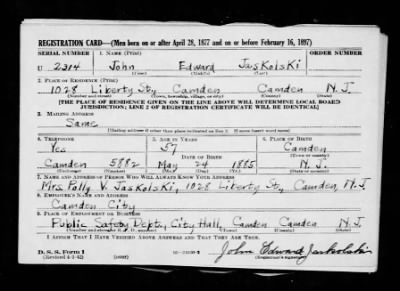 REGISTRATION CARD—(Men born on or after April 28, 1877 and on or before February 16, 1897)
SERIAL NUMBER 1. NAME (Print) ORDER NUMBER
U 2314 John Edward Jaskolski
(First) (Middle) (Last)
2. PLACE OF RESIDENCE (Print)
1028 Liberty St, Camden Camden N.J.
(Number and street) (Town, township, village, or city) (County) (State)
[THE PLACE OF RESIDENCE GIVEN ON THE LINE ABOVE WILL DETERMINE LOCAL BOARD
JURISDICTION; LINE 2 OF REGISTRATION CERTIFICATE WILL BE IDENTICAL]
3. MAILING ADDRESS
Same
[Mailing address if other than place indicated on line 2. If same insert word same]
4. TELEPHONE 5. AGE IN YEARS 6. PLACE OF BIRTH
Yes 57 Camden
DATE OF BIRTH (Town or county)
Camden 5882 May 24 1885 N.J.
7. NAME AND ADDRESS OF PERSON WHO WILL ALWAYS KNOW YOUR ADDRESS
Mrs. Polly V. Jaskolski, 1028 Liberty St, Camden, N.J.
8. EMPLOYER'S NAME AND ADDRESS
Camden City
9. PLACE OF EMPLOYMENT OR BUSINESS
Public Safety Dept, City Hall, Camden Camden N.J.
I AFFIRM THAT I HAVE VERIFIED ABOVE ANSWERS AND THAT THEY ARE TRUE.
D. S. S. Form 1
John Edward Jaskolski